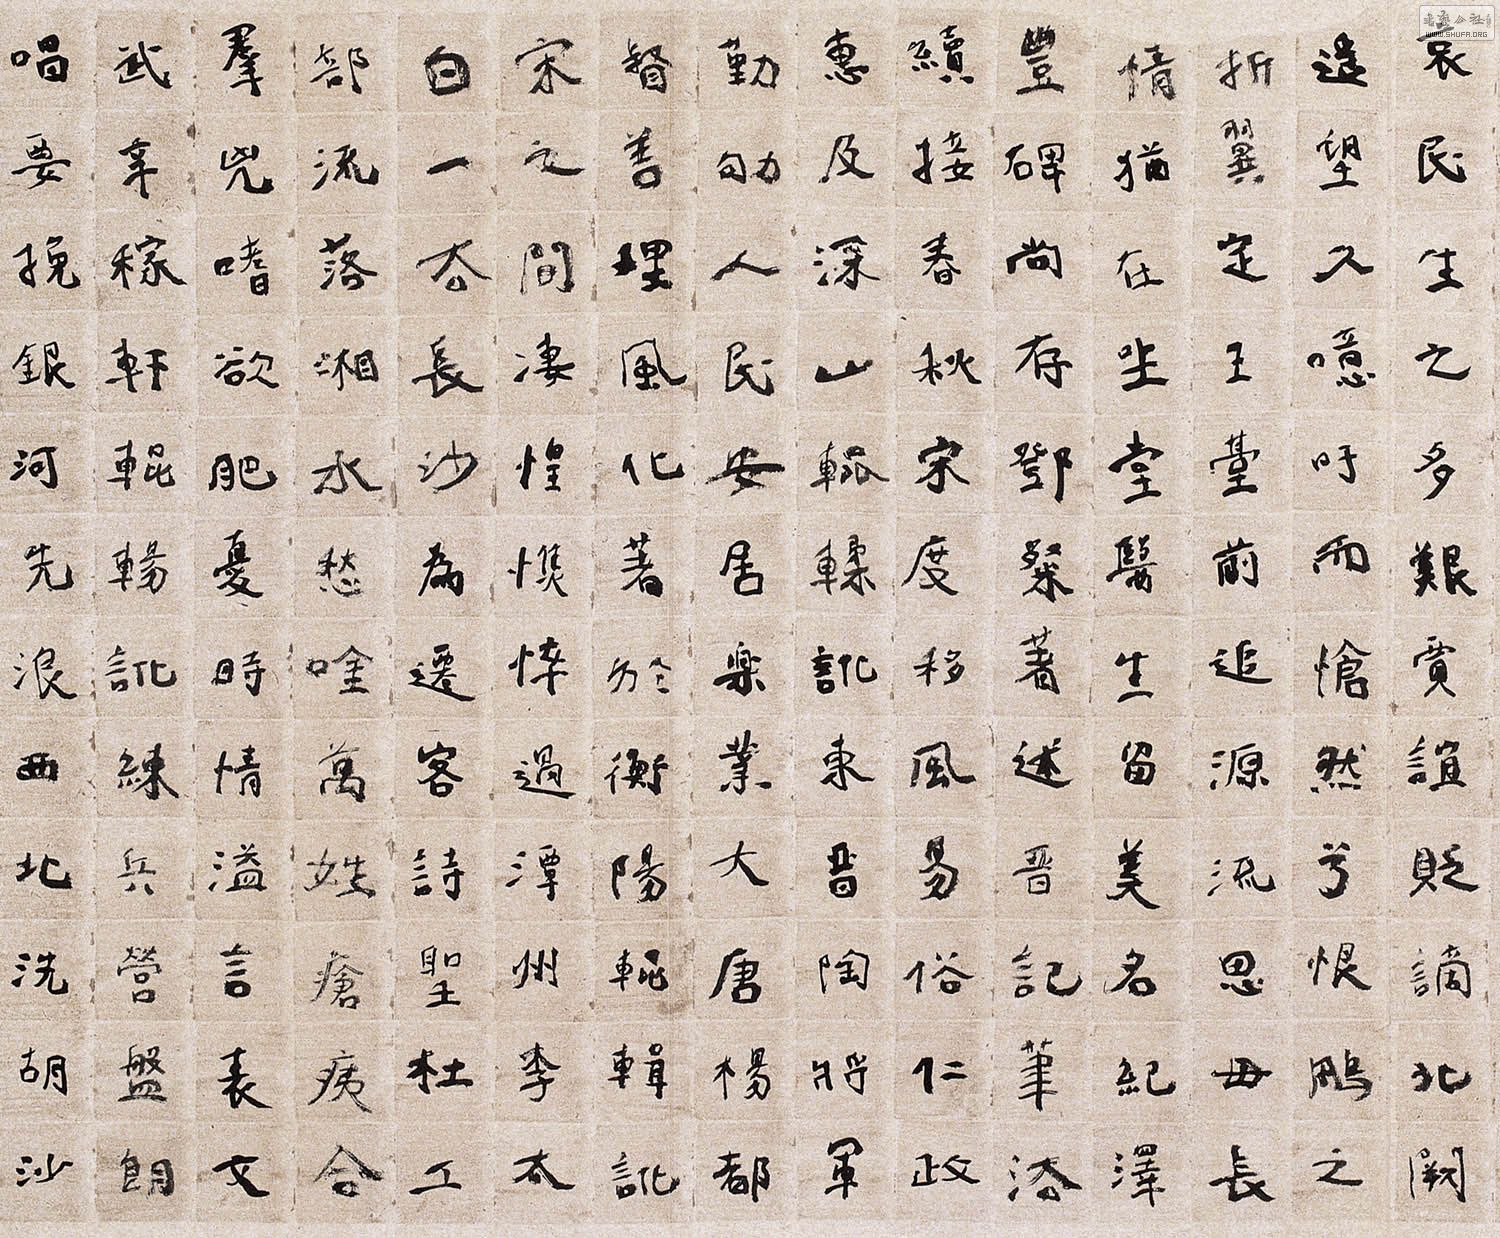 哀民生之多艱賈誼貶謫北闕
遠望久噫吁而愴然兮恨鵬之
折翼定王臺前追源流思毋長
情猶在坐堂醫生留美名紀澤
豐碑尚存鄧粲著述晉記筆
續接春秋宋度移風易俗仁政
惠及深山軱輮訛東晉陶將軍
勤劬人民安居楽業大唐楊都
督善理風化著於衡陽輗輯訛
宋之間淒惶憔悴過潭州李太
白一厺長沙為遷客詩聖杜工
部流落湘水愁唫萬姓瘡痍合
羣兇嗜欲肥憂時情溢言表文
武辛稼軒輥輰訛練兵營盤朗
唱要挽銀河先浪西北洗胡沙
WWW.SHUFA.ORG